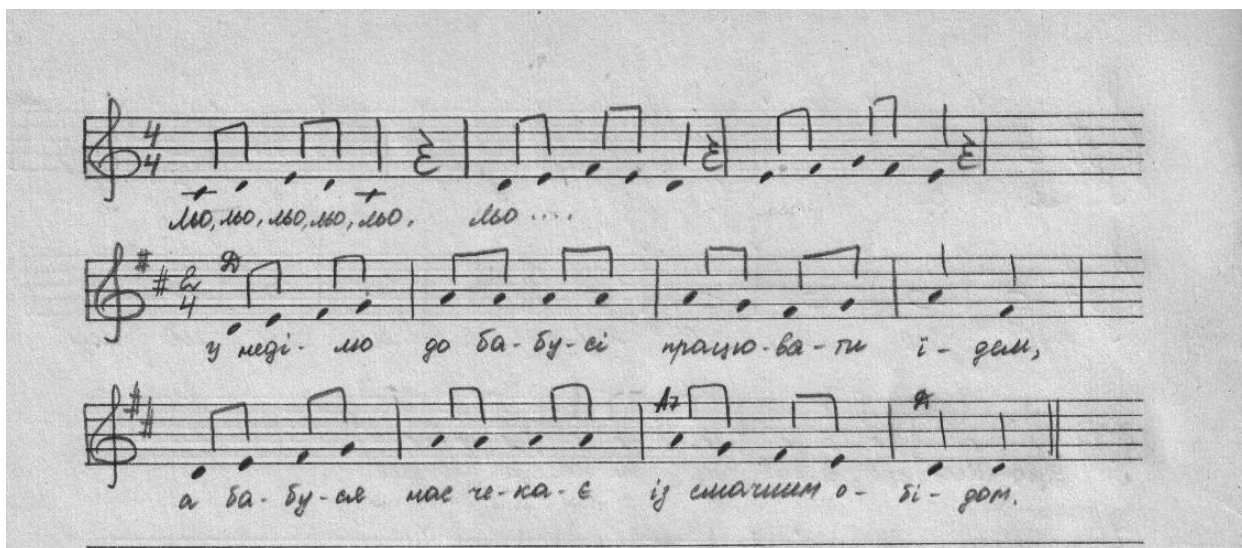 4
4
льо, льо, льо, льо, льо, льо ....
2
4
D
у неді- лю до ба- бу- сі працю- ва- ти ї- дем,
A7 D
а ба- бу- ся нас че- ка- є із смачним о- бі- дом.